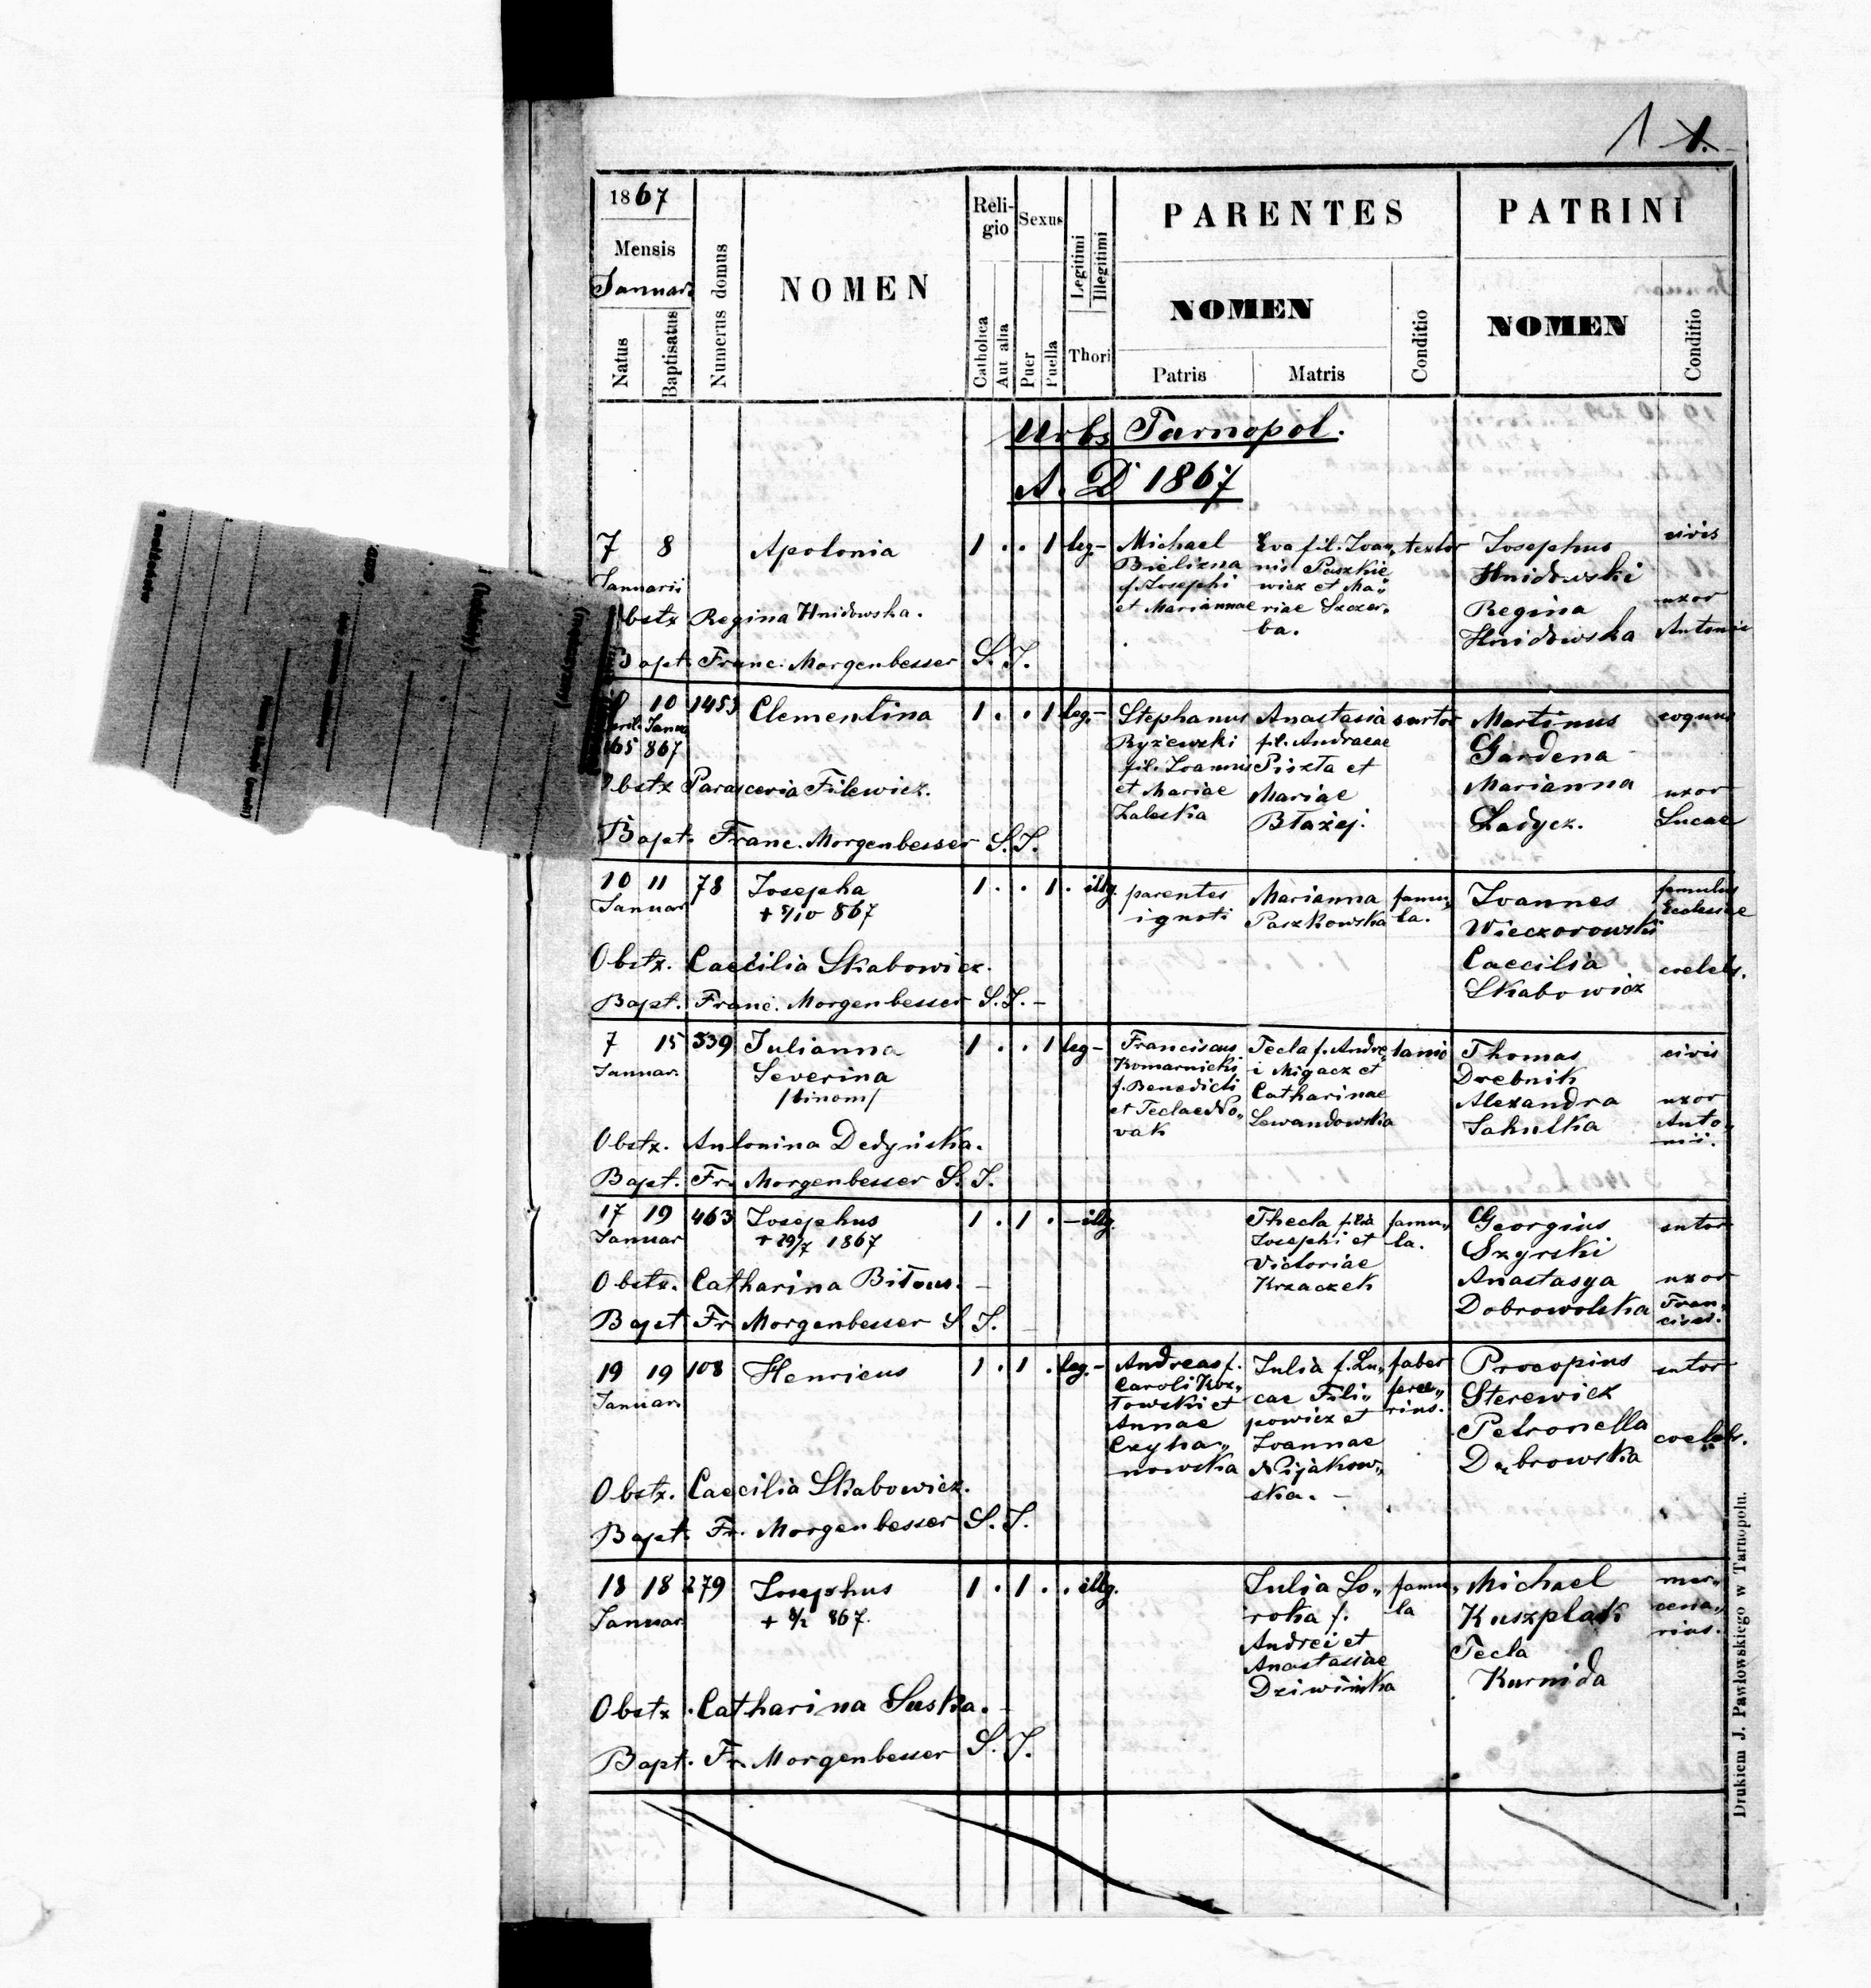 1 1.
1867
Mensis
Januar
Natus
Baptisatus
Numerus domus
NOMEN
Religio
Catholica
Aut alia
Sexus
Puer
Puella
Legitimi
Illegitimi
Thori
PARENTES
NOMEN
Patris
Matris
Conditio
PATRINI
NOMEN
Conditio
Urbs Tarnopol.
A. D 1867
7 8
Januarii
Apolonia
1 . . 1 leg.-
Michael
Bielizna
f. Josephi
et Mariannae
Eva fil. Joan„
nis Paszkie
wicz et Ma„
riae Szczer„
ba.
textor
Josephus
Hnidowski
Regina
Hnidowska
civis
uxor
Antonii
Obstx Regina Hnidowska.
Bapt. Franc. Morgenbesser S. J.
10 1453
Janua
865 867
Clementina
1 . . 1 leg.-
Stephanus
Ryżewski
fil. Joannis
et Mariae
Zaleska
Anastasia
fil. Andraeae
Piszta et
Mariae
Błażej.
sartor
Martinus
Gardena
Marianna
Ładycz.
coquus
uxor
Lucae
Obstx Parasceria Filewicz.
Bapt. Franc. Morgenbesser S. J.
10 11 78
Januar
Josepha
+ 5/10 867
1 . . 1 . illg.
parentes
ignoti
Marianna
Paszkowska
famu„
la.
Joannes
Wieczorowski
Caecilia
Skabowicz
famulus
Ecclesiae
coelebs.
Obstx. Caecilia Skabowicz.
Bapt. Franc. Morgenbesser S. J. -
7 15 539
Januar.
Julianna
Severina
/binom/
1 . . 1 leg-
Franciscus
Komarnicki
f. Benedicti
et Teclae No„
vak
Tecla f. Andre„
i Migacz et
Catharinae
Lewandowska
lanio
Thomas
Drebnik
Alexandra
Sahulka
civis
uxor
Anto„
nii.
Obstx. Antonina Dedyńska.
Bapt. Fr. Morgenbesser S. J.
17 19 463
Januar
Josephus
+ 29/7 1867
1 . 1 . - illg.
Thecla filia
Josephi et
Victoriae
Krzaczek
famu„
la.
Georgius
Szyrski
Anastasya
Dobrowolska
sutor
uxor
Fran„
cisci.
Obstx. Catharina Biłous. -
Bapt Fr. Morgenbesser S. J.
19 19 108
Januar.
Henricus
1 . 1 . leg.-
Andreas f.
Caroli Koz„
łowski et
Annae
Czyha„
nowska
Julia f. Lu„
cae Fili„
powicz et
Joannae
Nijakow„
ska. -
faber
ferra„
rius.
Procopius
Sterewicz
Petronella
Dąbrowska
sutor
coelebs.
Obstx. Caecilia Skabowicz.
Bapt. Fr. Morgenbesser S. J.
18 18 279
Januar
Josephus
+ 8/2 867.
1 . 1 . . illg.
Julia So„
roka f.
Andrei et
Anastasiae
Dziwińska
famu„
la
Michael
Kuszplak
Tecla
Kurnida
mer„
cena„
rius.
Obstx. Catharina Suska. -
Bapt. Fr. Morgenbesser S. J.
Drukiem J. Pawłowskiego w Tarnopolu.